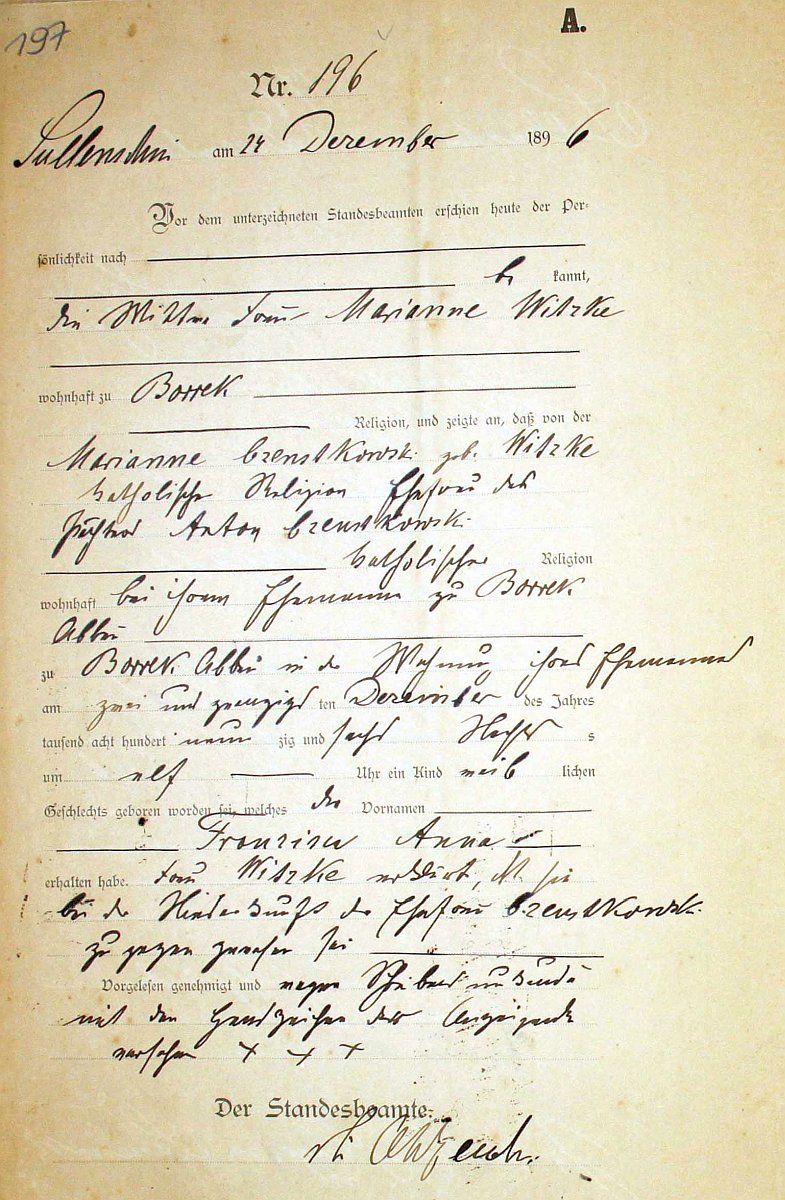 197
A.
Nr. 196
Sullenschin am 24 Dezember 1896
Vor dem unterzeichneten Standesbeamten erschien heute der Per-
sönlichkeit nach
be kannt,
die Wittwe Frau Marianne Witzke
wohnhaft zu Borrek
Religion, und zeigte an, daß von der
Marianne Czenstkowski geb. Witzke
katholischer Religion Ehefrau des
Pächters Anton Czenstkowski
katholischer Religion
wohnhaft bei ihrem Ehemanne zu Borrek
Abbau
zu Borrek Abbau in der Wohnung ihres Ehemannes
am zwei und zwanzigs ten Dezember des Jahres
tausend acht hundert neun zig und sechs Nachts
um elf Uhr ein Kind weib lichen
Geschlechts geboren worden sei, welches die Vornamen
Franzisca Anna
erhalten habe. Frau Witzke erklärt, daß sie
bei der Niederkunft der Ehefrau Czenstkowski
zugegen gewesen sei
Vorgelesen genehmigt und wegen Schreibensunkunde
mit den Handzeichen der Anzeigende
versehen + + +
Der Standesbeamte.